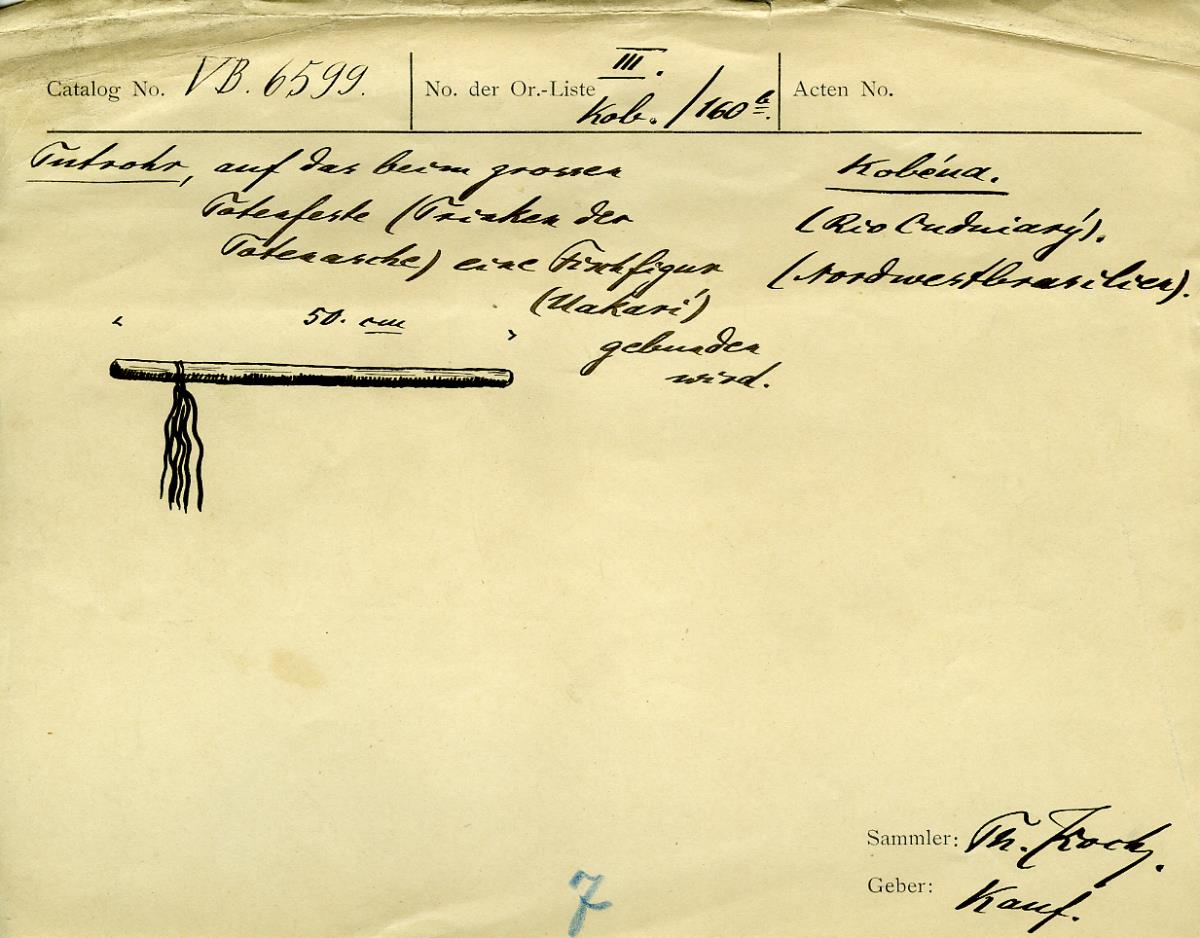 Catalog No. VB. 6599.
No. der Or.-Liste III. Kob./160 b.
Acten No.
Tutrohr, auf das beim grossen
Totenfeste (Trinken der
Totenasche) eine Fischfigur
(Uakarí)
gebunden
wird.
Kobéua.
(Rio Cuduiarý).
(Nordwestbrasilien).
50. cm
Sammler: Th. Koch.
Geber: Kauf.
7